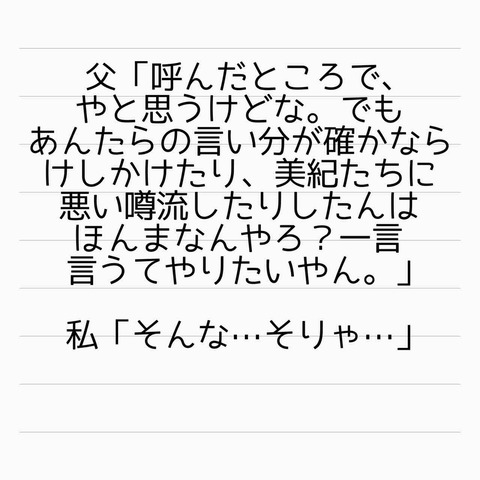 父「呼んだところで、
やと思うけどな。でも
あんたらの言い分が確かなら
けしかけたり、美紀たちに
悪い噂流したりしたんは
ほんまなんやろ？一言
言うてやりたいやん。」
私「そんな…そりゃ…」